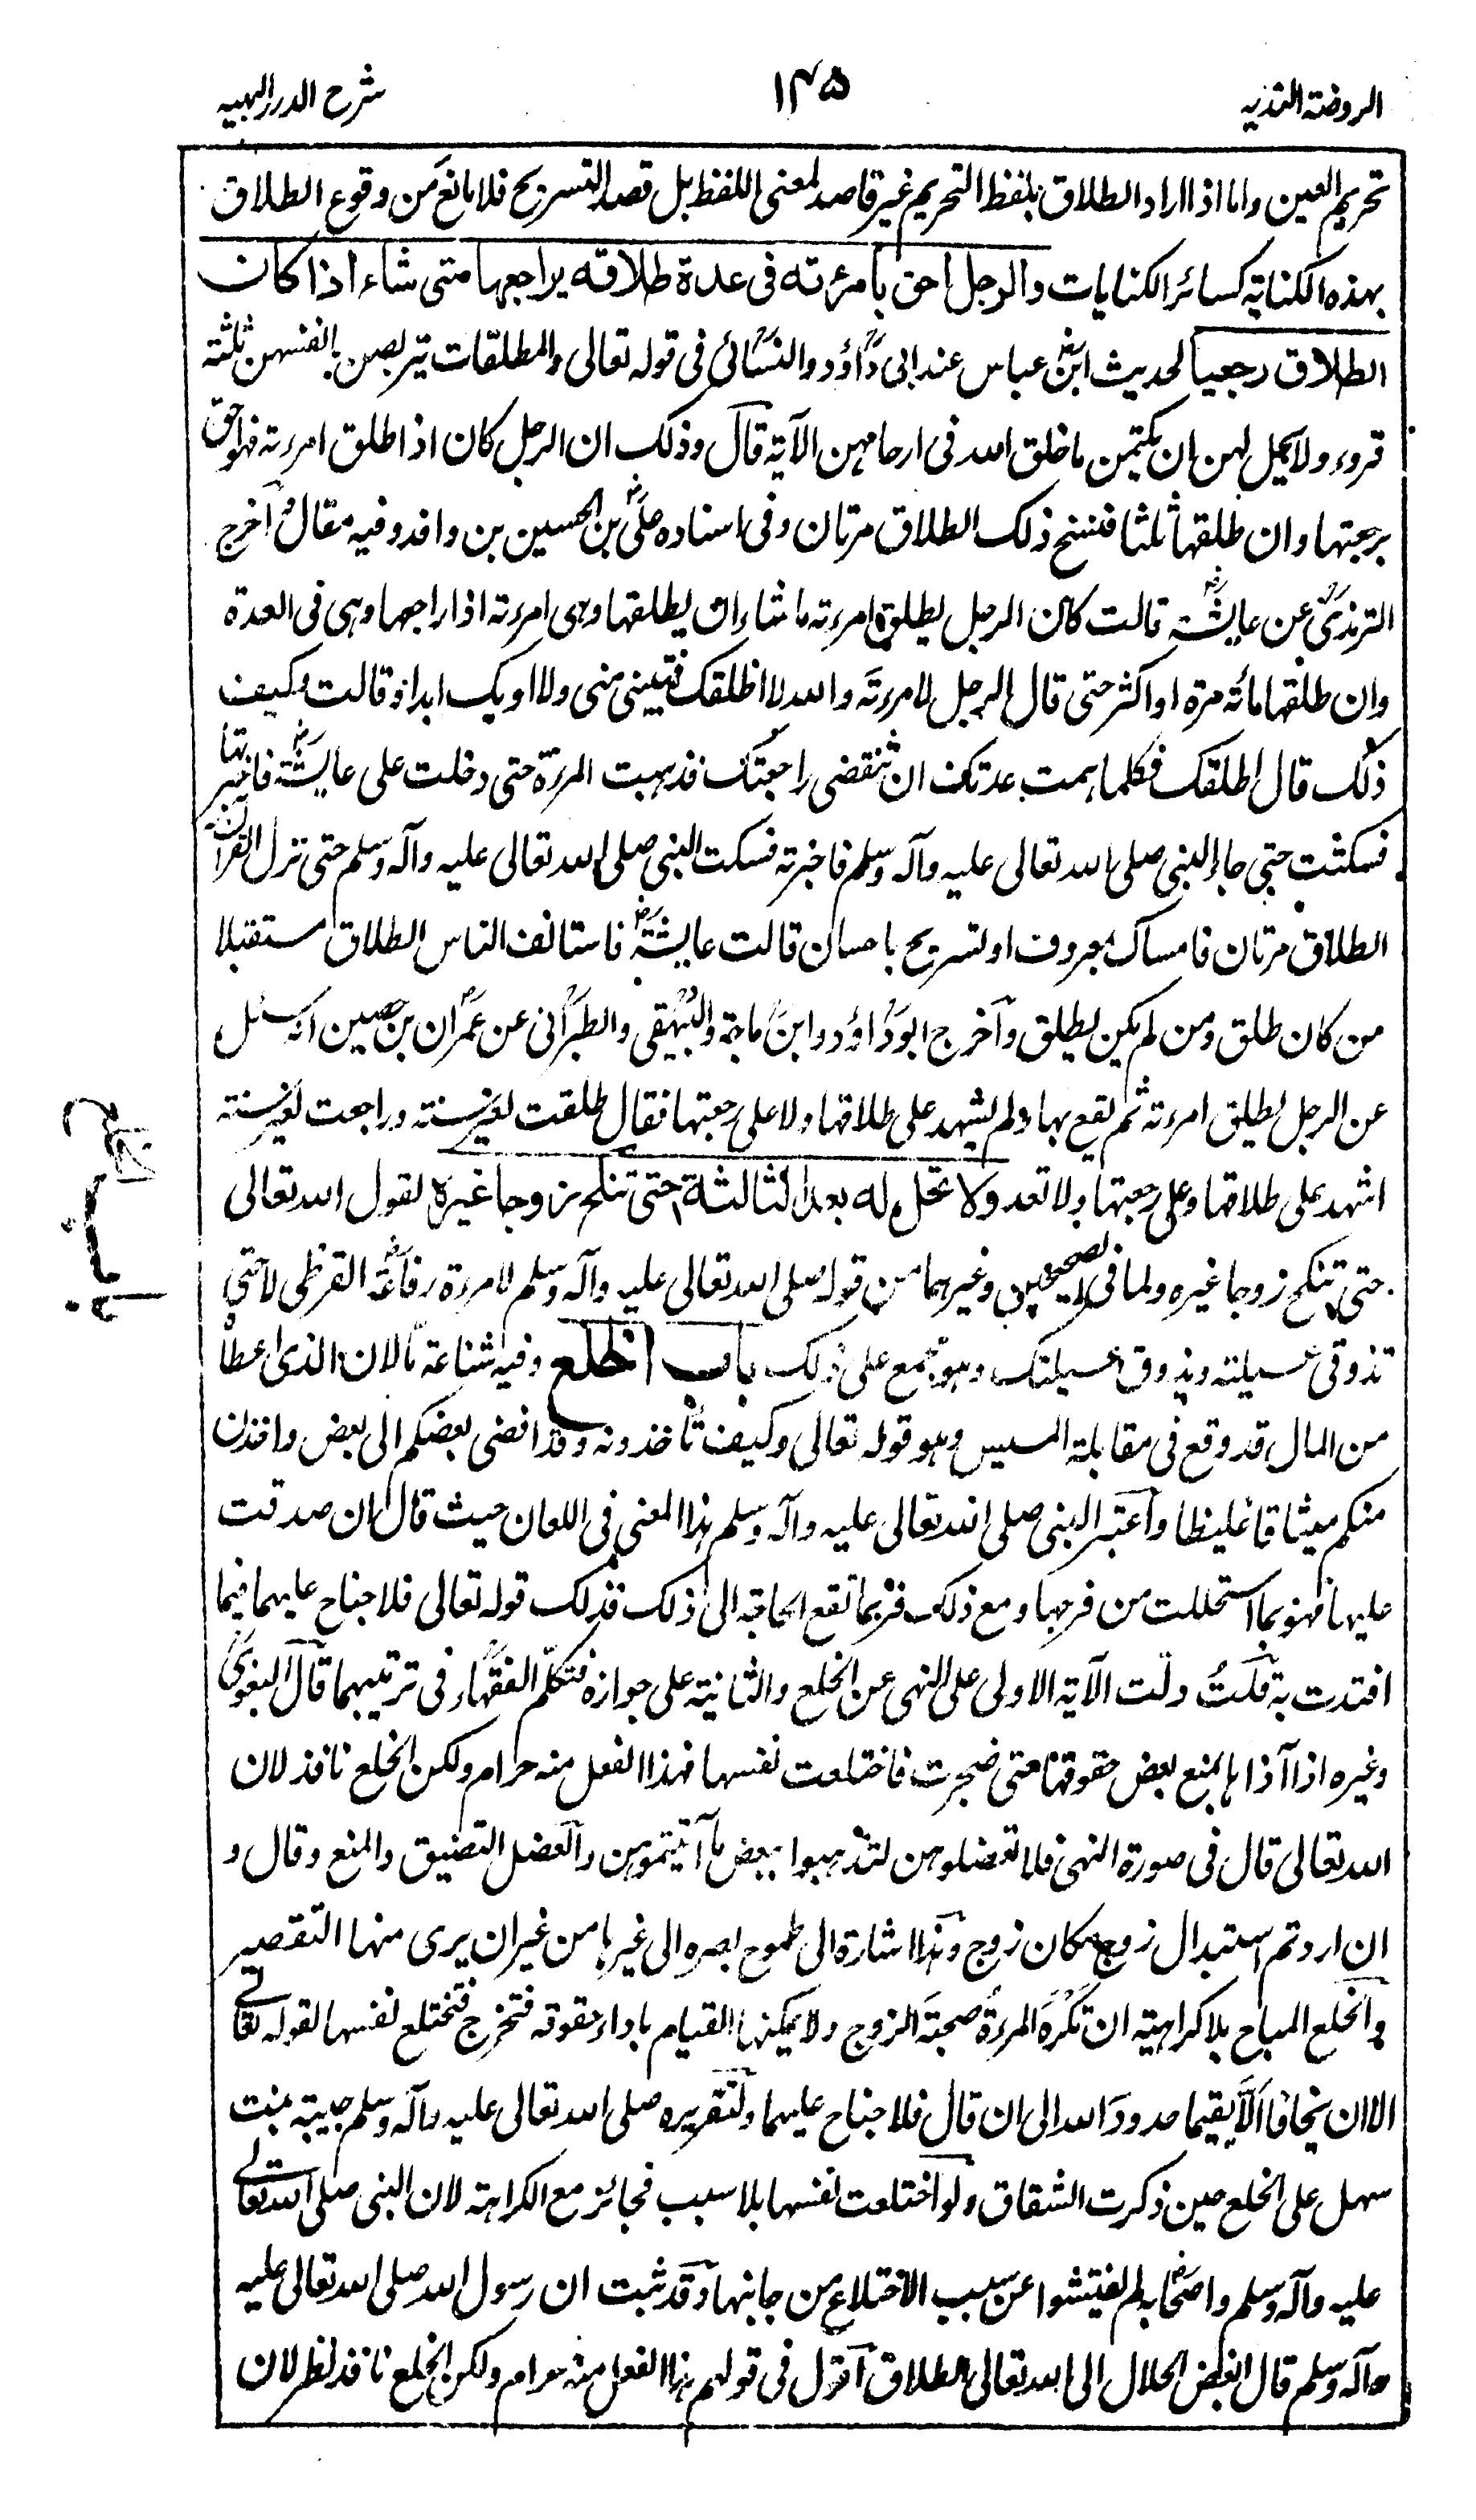 الروضة الندیه
۱۴۵
شرح الدرر البهیه
تحریم العین واما اذا اراد الطلاق بلفظ التحریم غیر قاصد لمعنی اللفظ بل قصد التسریح فلا مانع من وقوع الطلاق
بهذه الکنایة کسائر الکنایات والرجل احق بامرءته فی عدة طلاقه یراجعها متی شاء اذا کان
الطلاق رجعیا لحدیث ابن عباس عند ابی داؤد والنسائی فی قوله تعالی والمطلقات یتربصن بانفسهن ثلثة
قروء ولا یحل لهن ان یکتمن ما خلق الله فی ارحامهن الآیة قال وذلک ان الرجل کان اذا طلق امرءته فهو احق
برجعتها وان طلقها ثلثا فنسخ ذلک الطلاق مرتان وفی اسناده علی بن الحسین بن واقد وفیه مقال واخرج
الترمذی عن عایشة قالت کان الرجل یطلق امرءته ما شاء ان یطلقها وهی امرءته اذا راجعها وهی فی العدة
وان طلقها مائة مرة او اکثر حتی قال الرجل لامرءته والله لا اطلقک فتبینی منی ولا اویک ابدا قالت وکیف
ذلک قال اطلقک فکلما همت عدتک ان تنقضی راجعتک فذهبت المرءة حتی دخلت علی عایشة فاخبرتها
فسکتت حتی جاء النبی صلی الله تعالی علیه وآله وسلم فاخبرته فسکت النبی صلی الله تعالی علیه وآله وسلم حتی نزل القرآن
الطلاق مرتان فامساک بمعروف او تسریح باحسان قالت عایشة فاستانف الناس الطلاق مستقبلا
من کان طلق ومن لم یکن یطلق واخرج ابو داؤد وابن ماجة والبیهقی والطبرانی عن عمران بن حصین انه سئل
عن الرجل یطلق امرءته ثم یقع بها ولم یشهد علی طلاقها ولا علی رجعتها فقال طلقت لغیر سنة وراجعت لغیر سنة
اشهد علی طلاقها وعلی رجعتها ولا تعد ولا تحل له بعد الثالثة حتی تنکح زوجا غیره لقول الله تعالی
حتی تنکح زوجا غیره ولما فی الصحیحین وغیرهما من قوله صلی الله تعالی علیه وآله وسلم لامرءة رفاعة القرظی لا حتی
تذوقی عسیلته ویذوق عسیلتک وهو مجمع علی ذلک باب الخلع وفیه شناعة ما لان الذی اعطاه
من المال قد وقع فی مقابلة المسیس وهو قوله تعالی وکیف تأخذونه وقد افضی بعضکم الی بعض واخذن
منکم میثاقا غلیظا واعتبر النبی صلی الله تعالی علیه وآله وسلم هذا المعنی فی اللعان حیث قال ان صدقت
علیها فهو بما استحللت من فرجها ومع ذلک فربما تقع الحاجة الی ذلک فذلک قوله تعالی فلا جناح علیهما فیما
افتدت به قلت دلت الآیة الاولی علی النهی عن الخلع والثانیة علی جوازه فتکلم الفقهاء فی ترتیبهما قال البغوی
وغیره اذا آذاها بمنع بعض حقوقها متی ضجرت فاختلعت نفسها فهذا الفعل منه حرام ولکن الخلع نافذ لان
الله تعالی قال فی صورة النهی فلا تعضلوهن لتذهبوا ببعض ما آتیتموهن والعضل التضییق والمنع وقال و
ان اردتم استبدال زوج مکان زوج وهذا اشارة الی طموح بصره الی غیرها من غیر ان یری منها التقصیر
والخلع المباح بلا کراهیة ان تکره المرءة صحبة الزوج ولا یمکنها القیام باداء حقوقه فتخرج فتختلع نفسها لقوله تعالی
الا ان یخافا الا یقیما حدود الله الی ان قال فلا جناح علیهما ولتقریره صلی الله تعالی علیه وآله وسلم حبیبة بنت
سهل علی الخلع حین ذکرت الشقاق ولو اختلعت نفسها بلا سبب فجائز مع الکراهة لان النبی صلی الله تعالی
علیه وآله وسلم واصحابه لم یفتشوا عن سبب الاختلاع من جانبها وقد ثبت ان رسول الله صلی الله تعالی علیه
وآله وسلم قال ابغض الحلال الی الله تعالی الطلاق اقول فی قولهم هذا الفعل منه حرام ولکن الخلع نافذ نظر لان
باب
الخلع